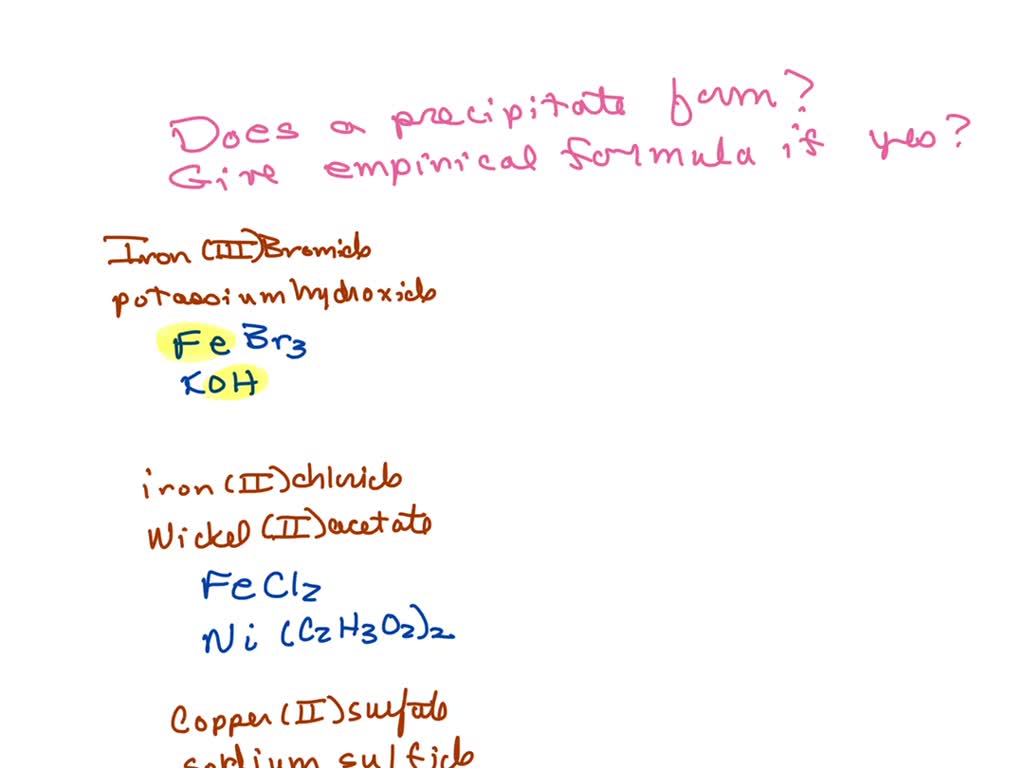 Does a precipitate form?
Give empirical formula if yes?
Iron (III) Bromide
potassium hydroxide
FeBr3
KOH
iron (II) chloride
Nickel (II) acetate
FeCl2
Ni (C2H3O2)2
Copper (II) sulfate
sodium sulfide